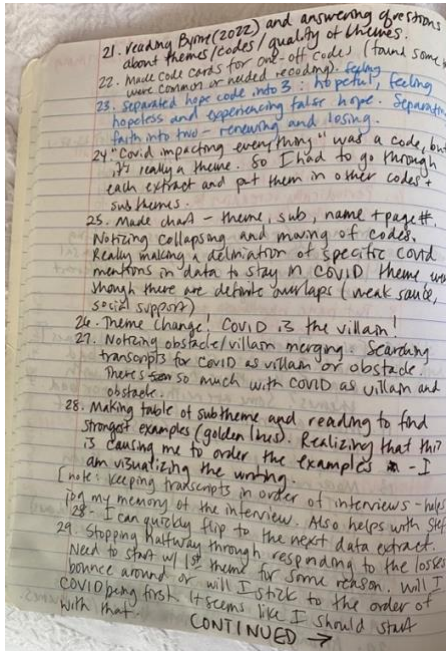 21. reading Byrne (2022) and answering questions
about themes/codes/quality of themes.
22. Made code cards for one-off codes (found some
were common or needed recoding). feeling
23. separated hope code into 3: hopeful, feeling
hopeless and experiencing false hope. Separating
faith into two - renewing and losing.
24 "Covid impacting everything" was a code, but
it's really a theme. So I had to go through
each extract and put them in other codes +
subthemes.
25. Made chart - theme, sub, name + page #.
Noticing collapsing and moving of codes.
Really making a delination of specific covid
mentions in data to stay in COVID theme
though there are definite overlaps (weak sauce,
social support)
26. Theme change! COVID is the villain!
27. Noticing obstacle/villain merging. Searching
transcripts for COVID as villain or obstacle.
There's so much with COVID as villain and
obstacle.
28. Making table of subtheme and reading to find
strongest examples (golden lines). Realizing that this
is causing me to order the examples - I
am visualizing the writing.
[note: keeping transcripts in order of interviews - helps
jog my memory of the interview. Also helps with step
28 - I can quickly flip to the next data extract.
29 Stopping halfway through responding to the losses
Need to start w/ 1st theme for some reason. Will I
bounce around or will I stick to the order of
COVID being first. It seems like I should start
with that.
CONTINUED →